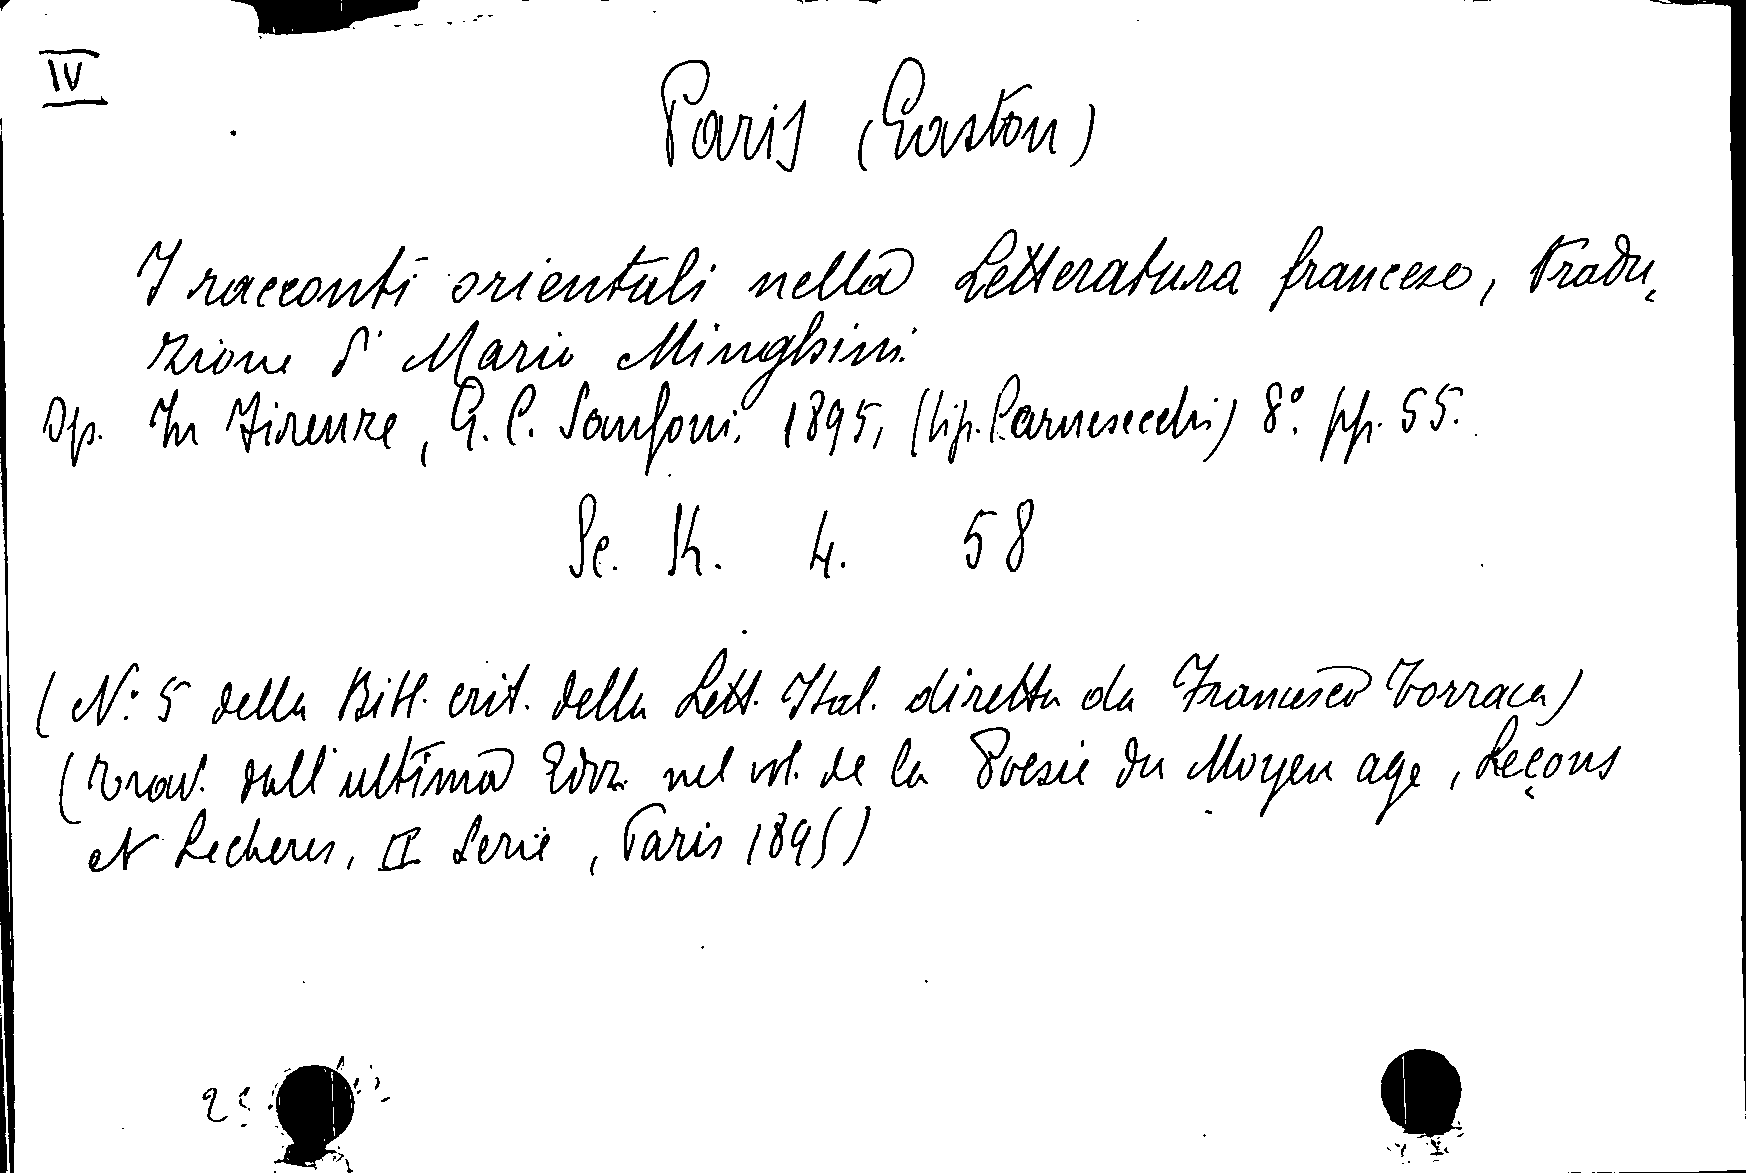 IV
Paris (Gaston)
I racconti orientali nella Letteratura francese, Tradu,
zione d' Mario Minghini.
Op. In Firenze, G. C. Sansoni. 1895, (tip. Carnesecchi) 8.º pp. 55.
Se. K. 4. 58
(N.º 5 della Bibl. crit. della Lett. Ital. diretta da Francesco Torraca)
(Trad. dall'ultima Ediz. nel vol. de la Poesie du Moyen age, Leçons
et Lecheres, II Serie, Paris 1895)